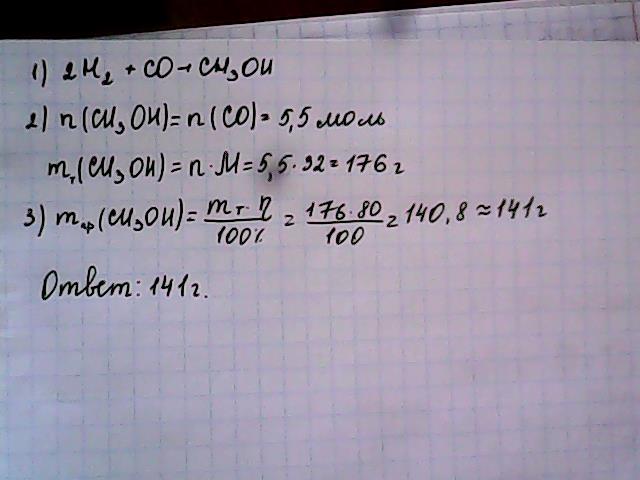 1) 2H₂ + CO → CH₃OH
2) n(CH₃OH) = n(CO) = 5,5 моль
mт(CH₃OH) = n·M = 5,5·32 = 176 г
3) mпр(CH₃OH) = mт·η/100% = 176·80/100 = 140,8 ≈ 141 г
Ответ: 141 г.